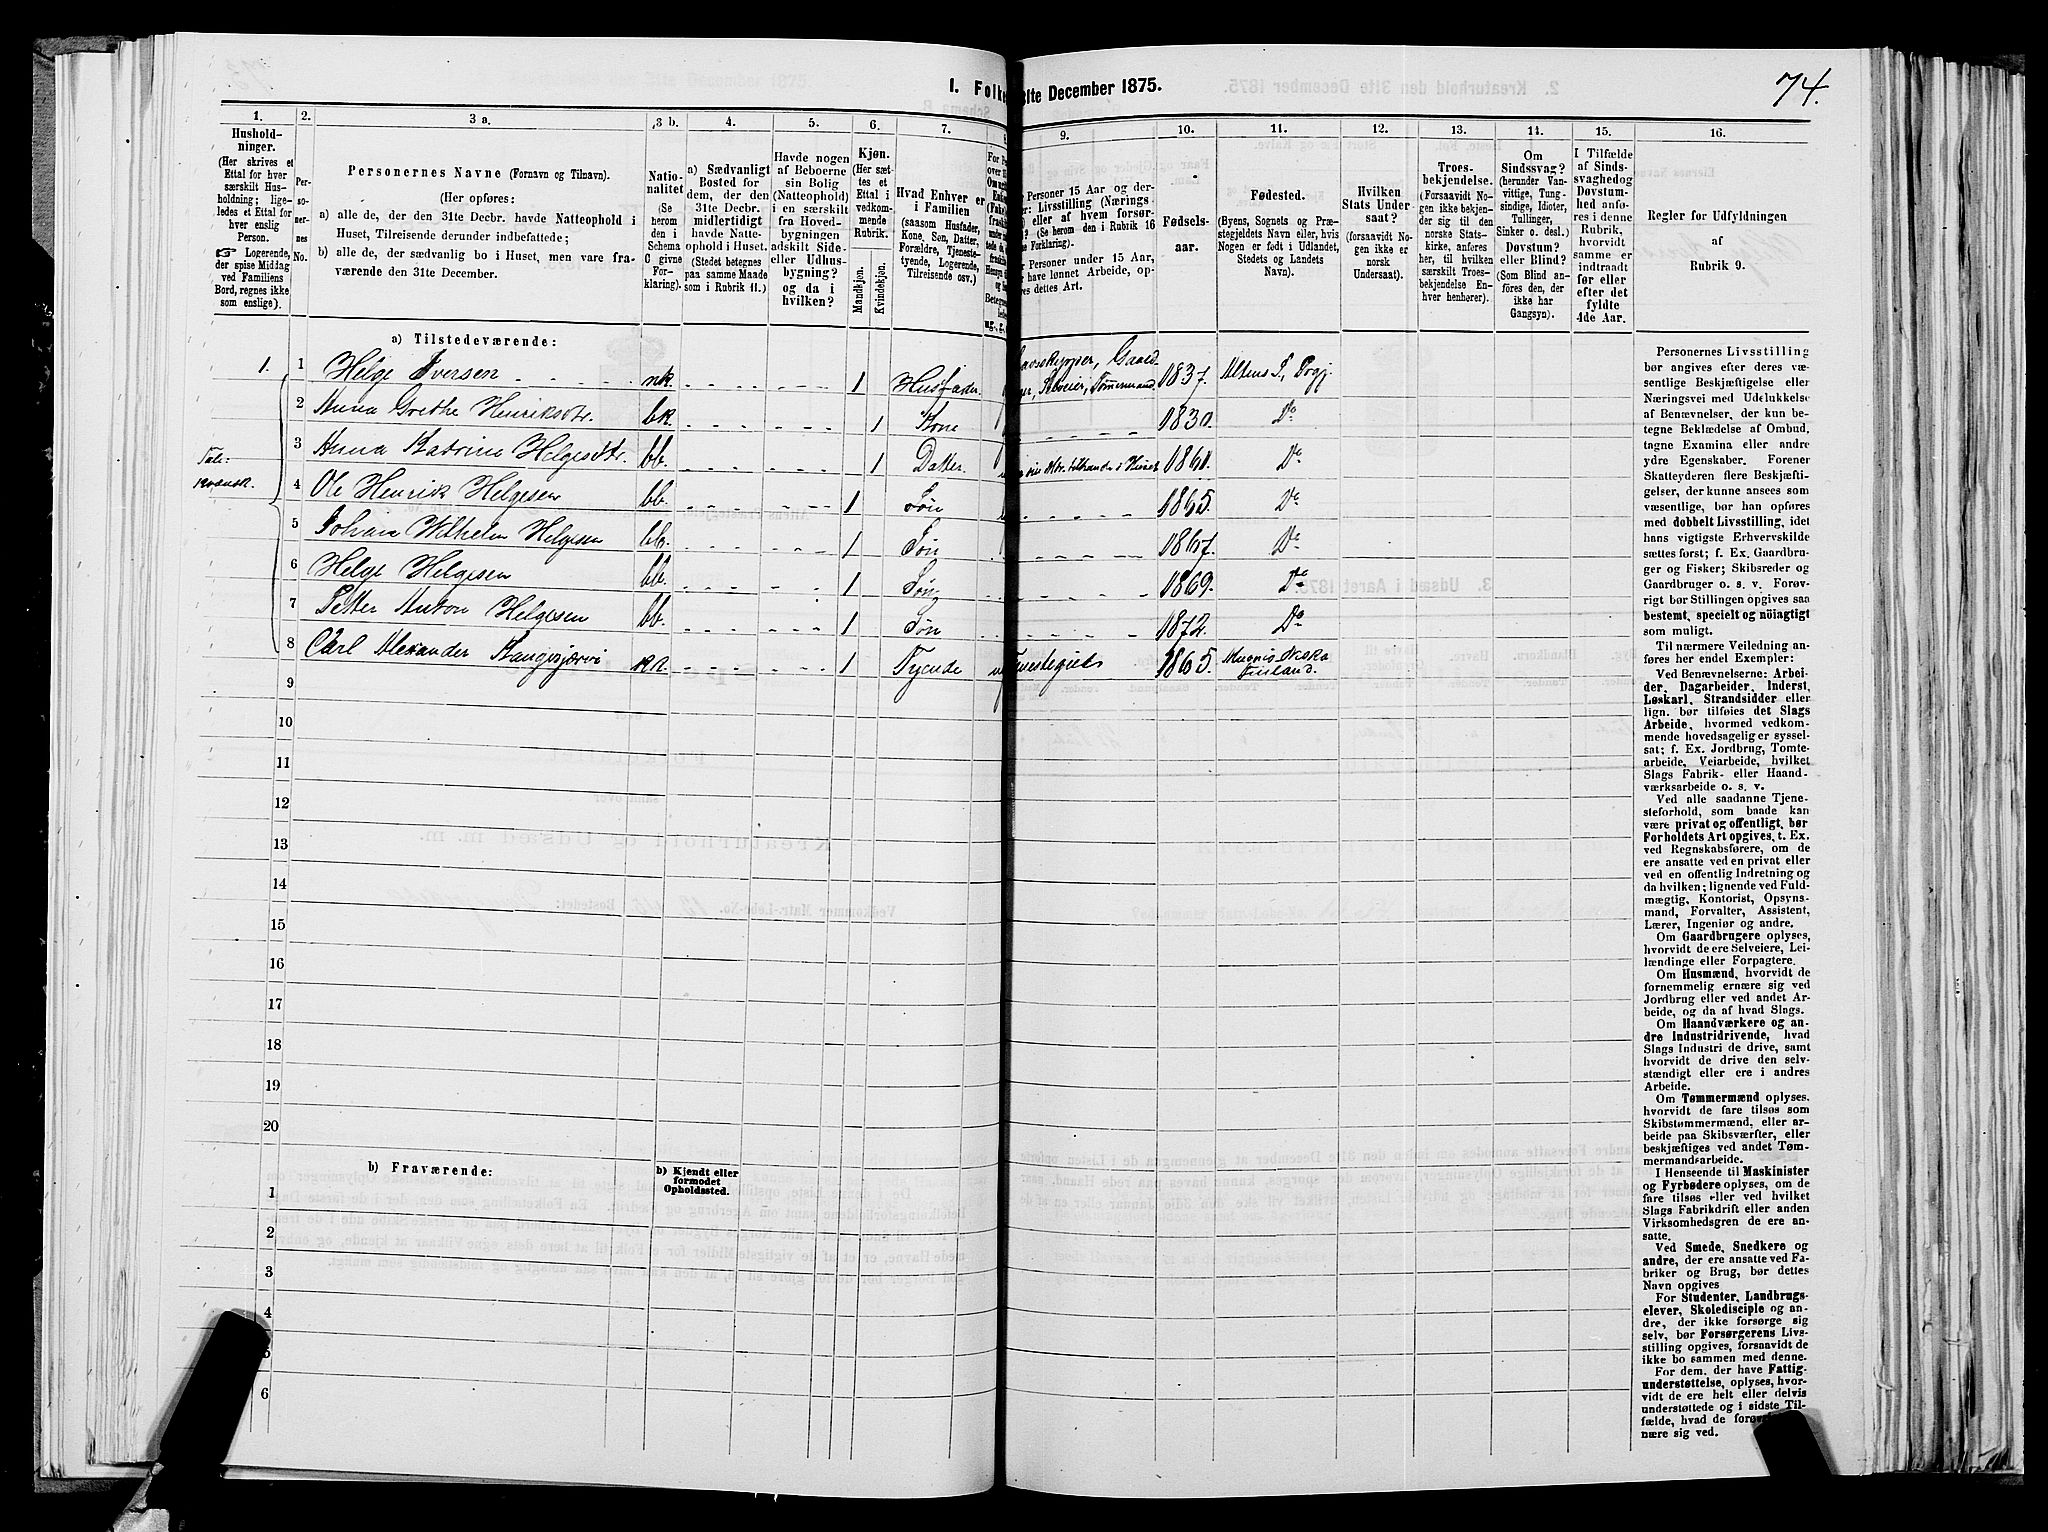 74.
I. Folke
31te December 1875.
1.
Hushold-
ninger.
(Her skrives et
Ettal for hver
særskilt Hus-
holdning; lige-
ledes et Ettal for
hver enslig
Person.
☞ Logerende,
der spise Middag
ved Familiens
Bord, regnes ikke
som enslige).
2.
Per-
so-
ner-
nes
No.
3 a.
Personernes Navne (Fornavn og Tilnavn).
(Her opføres:
a) alle de, der den 31te Decbr. havde Natteophold i
Huset, Tilreisende derunder indbefattede;
b) alle de, der sædvanlig bo i Huset, men vare fra-
værende den 31te December.
3 b.
Natio-
nalitet
(Se
herom
den i
Schema
C givne
For-
klaring).
4.
a) Sædvanligt
Bosted for
dem, der den
31te Decbr.
midlertidigt
havde Natte-
ophold i Huset.
(Stedet betegnes
paa samme Maade
som i Rubrik 11.)
5.
Havde nogen
af Beboerne
sin Bolig
(Natteophold)
i en særskilt
fra Hoved-
bygningen
adskilt Side-
eller Udhus-
bygning?
og da i
hvilken?
6.
Kjøn.
(Her sæt-
tes et
Ettal i
vedkom-
mende
Rubrik.
Mandkjøn.
Kvindekjøn.
7.
Hvad Enhver er
i Familien
(saasom Husfader,
Kone, Søn, Datter,
Forældre, Tjeneste-
tyende, Logerende,
Tilreisende osv.)
8.
9.
Personer 15 Aar og der-
Livsstilling (Nærings
) eller af hvem forsør-
? (Se herom den i Rubrik 16
Forklaring).
Personer under 15 Aar,
have lønnet Arbeide, op-
dettes Art.
10.
Fødsels-
aar.
11.
Fødested.
(Byens, Sognets og Præ-
stegjeldets Navn eller, hvis
Nogen er født i Udlandet,
Stedets og Landets
Navn).
12.
Hvilken
Stats Under-
saat?
(forsaavidt No-
gen ikke er
norsk
Undersaat).
13.
Troes-
bekjendelse.
(Forsaavidt No-
gen ikke bekjen-
der sig til den
norske Stats-
kirke, anføres
her, til hvilken
særskilt Troes-
bekjendelse En-
hver henhører).
14.
Om
Sindssvag?
(herunder Van-
vittige, Tung-
sindige, Idioter,
Tullinger,
Sinker o. desl.)
Døvstum?
eller Blind?
(Som Blind an-
føres den, der
ikke har
Gangsyn).
15.
I Tilfælde
af Sinds-
svaghed og
Døvstum-
hed anfø-
res i denne
Rubrik,
hvorvidt
samme er
indtraadt
før eller
efter det
fyldte
4de Aar.
16.
Regler for Udfyldningen
af
Rubrik 9.
a) Tilstedeværende:
1. 1 Helge Iversen nk. 1 Husfader Gaard- 1837. Altens S., Prgj.
Selveier, Tømmermand.
2 Anna Grethe Henriksdtr. bk. 1 Kone 1830. Do
3 Anna Katrine Helgesdtr. bb. 1 Datter. 1861. Do
Tale:
kvænsk.
4 Ole Henrik Helgesen bb. 1 Søn 1865. Do
5 Johan Wilhelm Helgesen bb. 1 Søn 1867. Do
6 Helge Helgesen bb. 1 Søn 1869. Do
7 Petter Anton Helgesen bb. 1 Søn 1872. Do
8 Carl Alexander kk. 1 Tyende 1865.
Finland.
9
10
11
12
13
14
15
16
17
18
19
20
b) Fraværende:
b) Kjendt eller
formodet
Opholdssted.
1
2
3
4
5
6
Personernes Livsstilling
bør angives efter deres væ-
sentlige Beskjæftigelse eller
Næringsvei med Udelukkelse
af Benævnelser, der kun be-
tegne Beklædelse af Ombud,
tagne Examina eller andre
ydre Egenskaber. Forener
Skatteyderen flere Beskjæfti-
gelser, der kunne ansees som
væsentlige, bør han opføres
med dobbelt Livsstilling, idet
hans vigtigste Erhvervskilde
sættes først; f. Ex. Gaardbru-
ger og Fisker; Skibsreder og
Gaardbruger o. s. v. Forøv-
rigt bør Stillingen opgives saa
bestemt, specielt og nöiagtigt
som muligt.
Til nærmere Veiledning an-
føres her endel Exempler:
Ved Benævnelserne: Arbei-
der, Dagarbeider, Inderst,
Løskarl, Strandsidder eller
lign. bør tilføies det Slags
Arbeide, hvormed vedkom-
mende hovedsagelig er syssel-
sat; f. Ex. Jordbrug, Tomte-
arbeide, Veiarbeide, hvilket
Slags Fabrik- eller Haand-
værksarbeide o. s. v.
Ved alle saadanne Tjene-
steforhold, som baade kan
være privat og offentligt, bør
Forholdets Art opgives, t. Ex.
ved Regnskabsførere, om de
ere ansatte ved en privat eller
ved en offentlig Indretning og
da hvilken; lignende ved Fuld-
mægtig, Kontorist, Opsyns-
mand, Forvalter, Assistent,
Lærer, Ingeniør og andre.
Om Gaardbrugere oplyses,
hvorvidt de ere Selveiere, Lei-
lændinge eller Forpagtere.
Om Husmænd, hvorvidt de
fornemmelig ernære sig ved
Jordbrug eller ved andet Ar-
beide, og da af hvad Slags.
Om Haandværkere og an-
dre Industridrivende, hvad
Slags Industri de drive, samt
hvorvidt de drive den selv-
stændigt eller ere i andres
Arbeide.
Om Tømmermænd oplyses,
hvorvidt de fare tilsøs som
Skibstømmermænd, eller ar-
beide paa Skibsværfter, eller
beskjæftiges ved andet Tøm-
mermandsarbeide.
I Henseende til Maskinister
og Fyrbødere oplyses, om de
fare tilsøs eller ved hvilket
Slags Fabrikdrift eller anden
Virksomhedsgren de ere an-
satte.
Ved Smede, Snedkere og
andre, der ere ansatte ved Fa-
briker og Brug, bør dettes
Navn opgives
For Studenter, Landbrugs-
elever, Skoledisciple og an-
dre, der ikke forsørge sig
selv, bør Forsørgerens Livs-
stilling opgives, forsaavidt de
ikke bo sammen med denne.
For dem, der have Fattig-
understøttelse, oplyses, hvor-
vidt de ere helt eller delvis
understøttede og i sidste Til-
fælde, hvad de
nære sig ved.